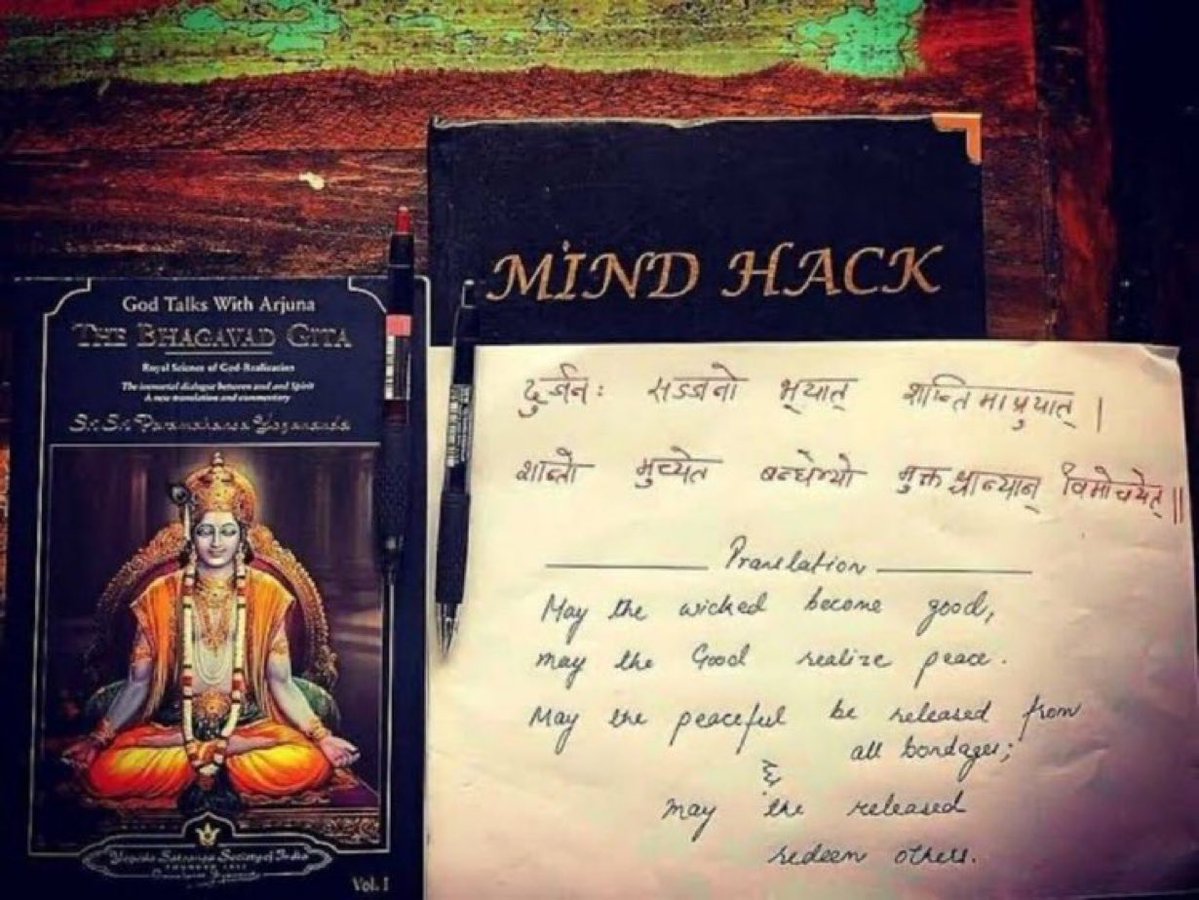 God Talks With Arjuna
THE BHAGAVAD GITA
Royal Science of God-Realization
The immortal dialogue between soul and Spirit
A new translation and commentary
Sri Sri Paramahansa Yogananda
Yogoda Satsanga Society of India
FOUNDED 1917
Paramahansa Yogananda
Vol. I
MIND HACK
दुर्जनः सज्जनो भूयात् शान्तिमाप्नुयात् |
शान्तो मुच्येत बन्धेभ्यो मुक्तश्चान्यान् विमोचयेत् ||
Translation
May the wicked become good,
may the Good realize peace.
May the peaceful be released from
all bondages;
&
may the released
redeem others.